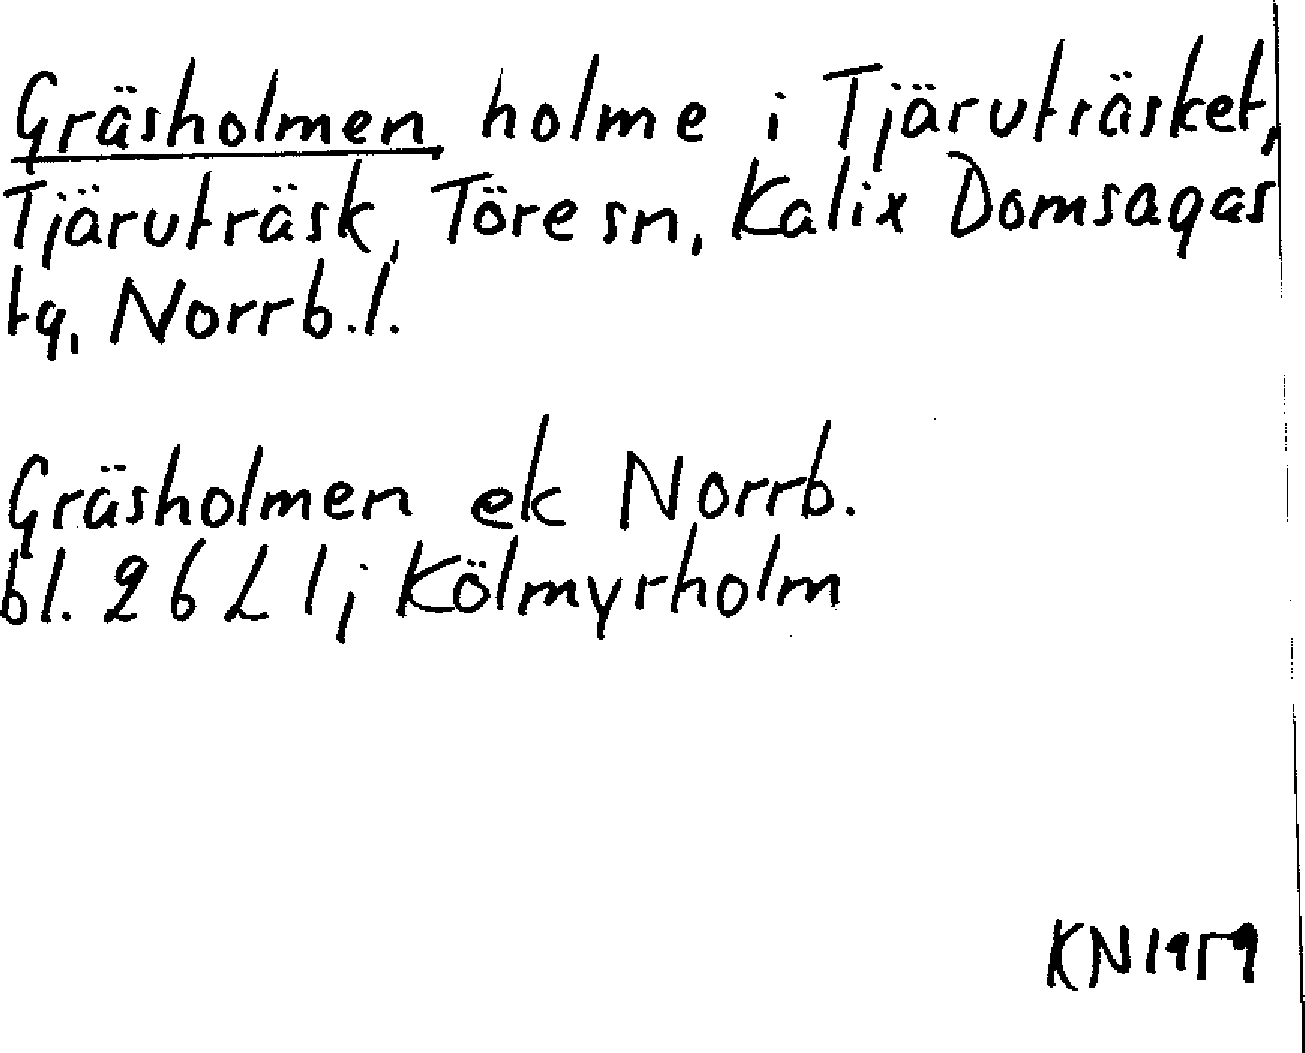 Gräsholmen, holme i Tjäruträsket,
Tjäruträsk, Töre sn, Kalix Domsagas
tg, Norrb.l.
Gräsholmen ek Norrb.
bl. 26 L 1; Kölmyrholm
KN 1959